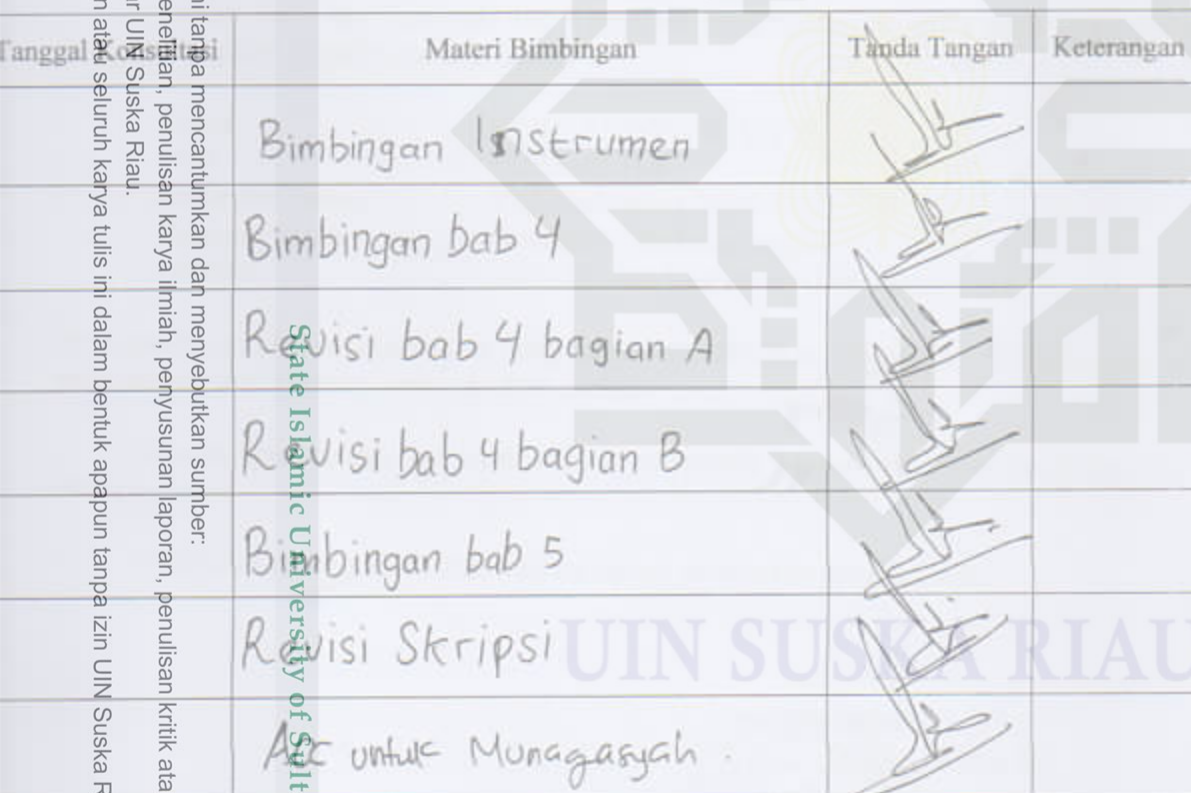 Tanggal Konsultasi Materi Bimbingan Tanda Tangan Keterangan
Bimbingan Instrumen
Bimbingan bab 4
Revisi bab 4 bagian A
Revisi bab 4 bagian B
Bimbingan bab 5
Revisi Skripsi
Acc untuk Munaqasyah.
ni tanpa mencantumkan dan menyebutkan sumber:
enelitian, penulisan karya ilmiah, penyusunan laporan, penulisan kritik ata
r UIN Suska Riau.
n atau seluruh karya tulis ini dalam bentuk apapun tanpa izin UIN Suska R
State Islamic University of Sult
UIN SUSKA RIAU